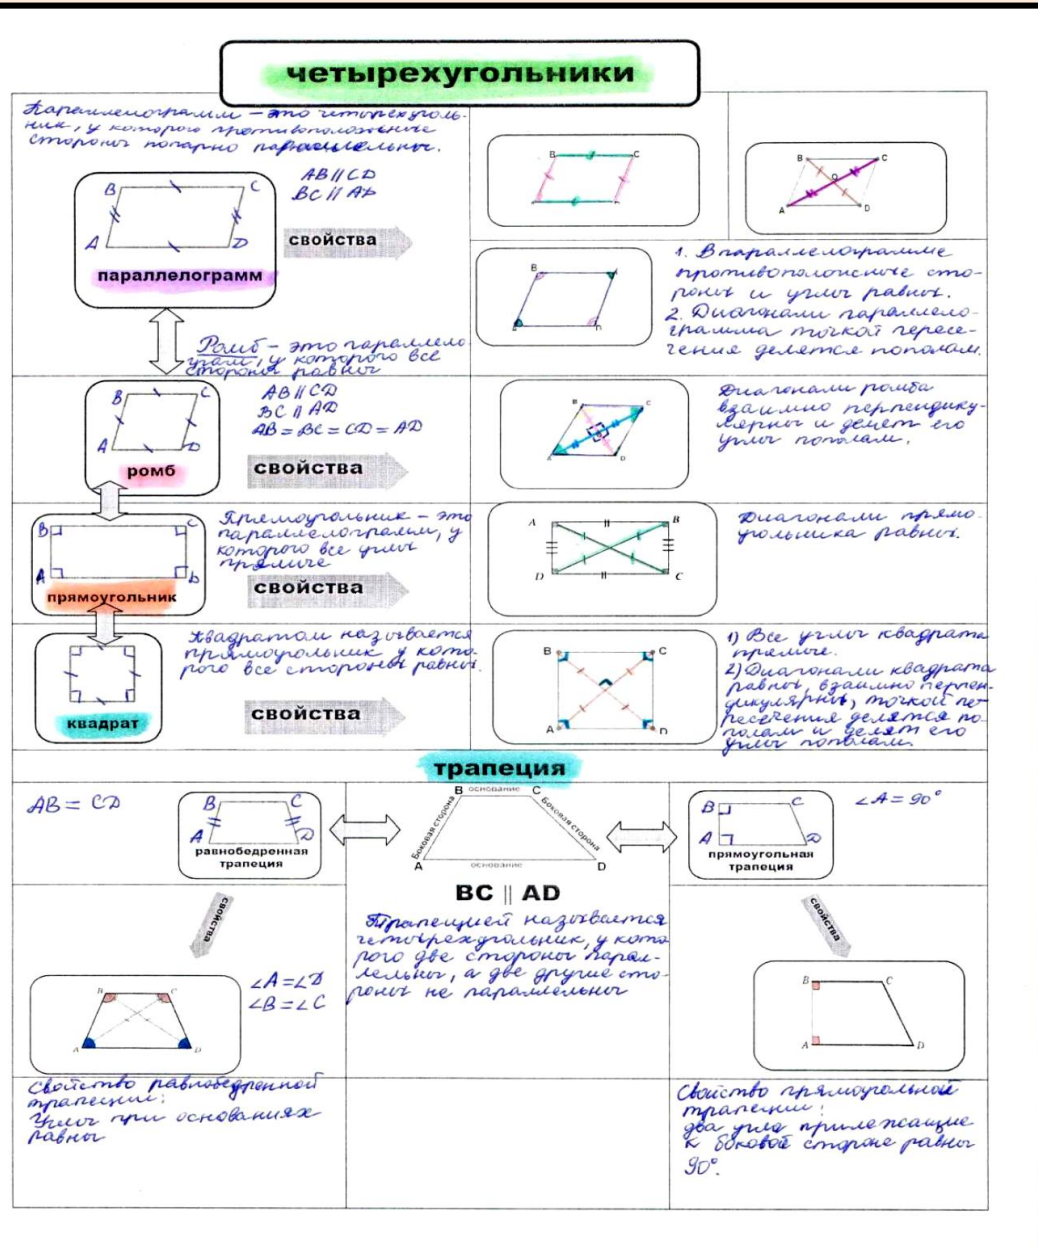 четырехугольники
Параллелограмм – это четырехуголь-
ник, у которого противоположные
стороны попарно параллельны.
AB || CD
BC || AD
B
C
A
D
параллелограмм
свойства
B
C
B
C
O
A
D
B
A
D
1. В параллелограмме
противоположные сто-
роны и углы равны.
2. Диагонали параллело-
грамма точкой пересе-
чения делятся пополам.
Ромб – это параллело
грам, у которого все
стороны равны
AB || CD
BC || AD
AB = BC = CD = AD
B
C
A
D
ромб
свойства
B
C
A
D
Диагонали ромба
взаимно перпендику-
лярны и делят его
углы пополам.
B
C
A
D
прямоугольник
Прямоугольник – это
параллелограмм, у
которого все углы
прямые
свойства
A
B
D
C
Диагонали прямо-
угольника равны.
квадрат
Квадратом называется
прямоугольник у кото-
рого все стороны равны.
свойства
B
C
A
D
1) Все углы квадрата
прямые.
2) Диагонали квадрата
равны, взаимно перпен-
дикулярны, точкой пе-
ресечения делятся по-
полам и делят его
углы пополам.
трапеция
AB = CD
B
C
A
D
равнобедренная
трапеция
B основание C
Боковая сторона
Боковая сторона
A основание D
BC || AD
Трапецией называется
четырехугольник, у кото
рого две стороны парал-
лельны, а две другие сто-
роны не параллельны
B
C
A
D
прямоугольная
трапеция
∠A = 90°
свойства
свойства
B
C
A
D
∠A = ∠D
∠B = ∠C
B
C
A
D
Свойство равнобедренной
трапеции:
Углы при основаниях
равны
Свойство прямоугольной
трапеции:
два угла прилежащие
к боковой стороне равны
90°.